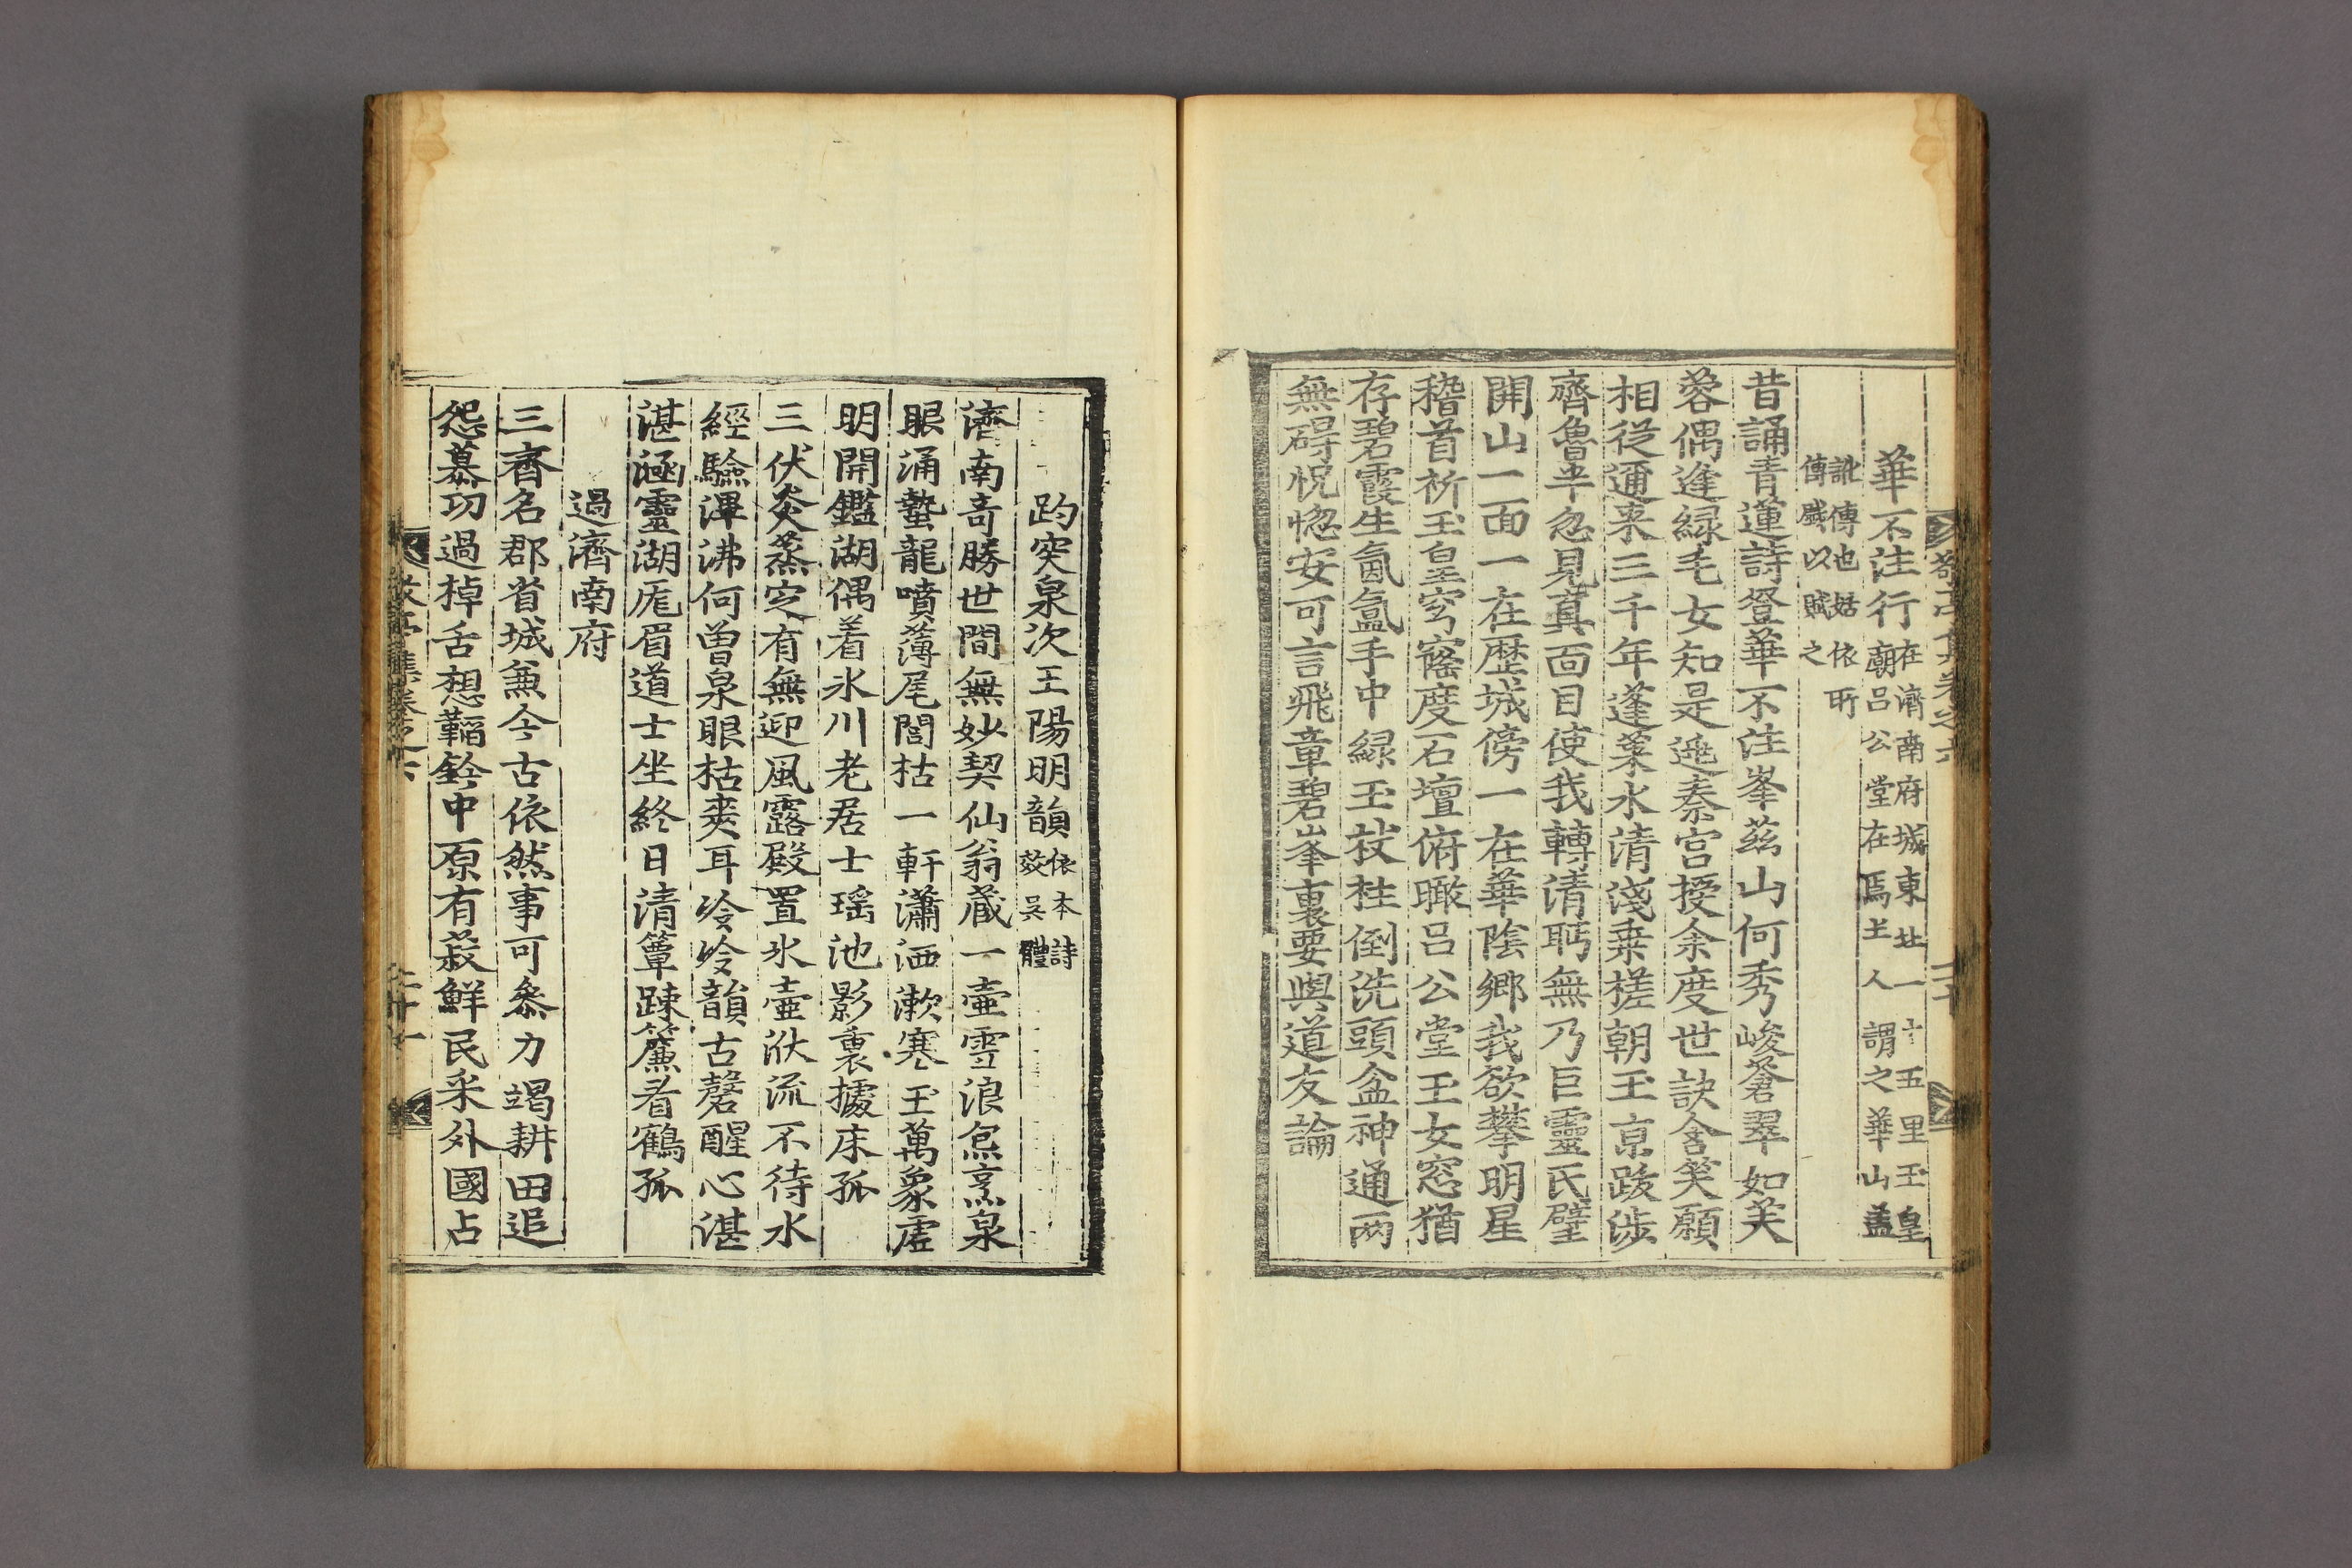 華不注行在濟南府城東北一十五里玉皇
廟呂公堂在焉土人謂之華山盖
訛傳也姑依所
傳戱以賦之
昔誦青蓮詩登華不注峯茲山何秀峻蒼翠如芙
蓉偶逢緑毛女知是逃秦宫授余度世訣含笑願
相從邇来三千年蓬萊水清淺乗槎朝玉京跋涉
齊魯半忽見真面目使我轉清眄無乃巨靈氏擘
開山一面一在歷城傍一在華陰鄉我欲攀明星
稽首祈玉皇穹窿度石壇俯瞰呂公堂玉女窓猶
存碧霞生氤氲手中緑玉杖柱倒洗頭盆神通兩
無碍怳惚安可言飛章碧峯裏要與道友論
趵突泉次王陽明韻依本詩
效吳體
濟南奇勝世間無妙契仙翁藏一壺雪浪炰烹泉
眼涌蟄龍噴薄尾閭枯一軒瀟洒漱寒玉萬象虛
明開鑑湖偶着氷川老居士瑶池影裏據床孤
三伏炎蒸定有無迎風露殿置氷壺洑流不待水
經驗渾沸何曾泉眼枯爽耳冷冷韻古磬醒心湛
湛涵靈湖厖眉道士坐終日清簟踈簾看鶴孤
過濟南府
三齊名郡省城兼今古依然事可叅力竭耕田追
怨慕功過掉舌想韜鈐中原有菽鮮民采外國占